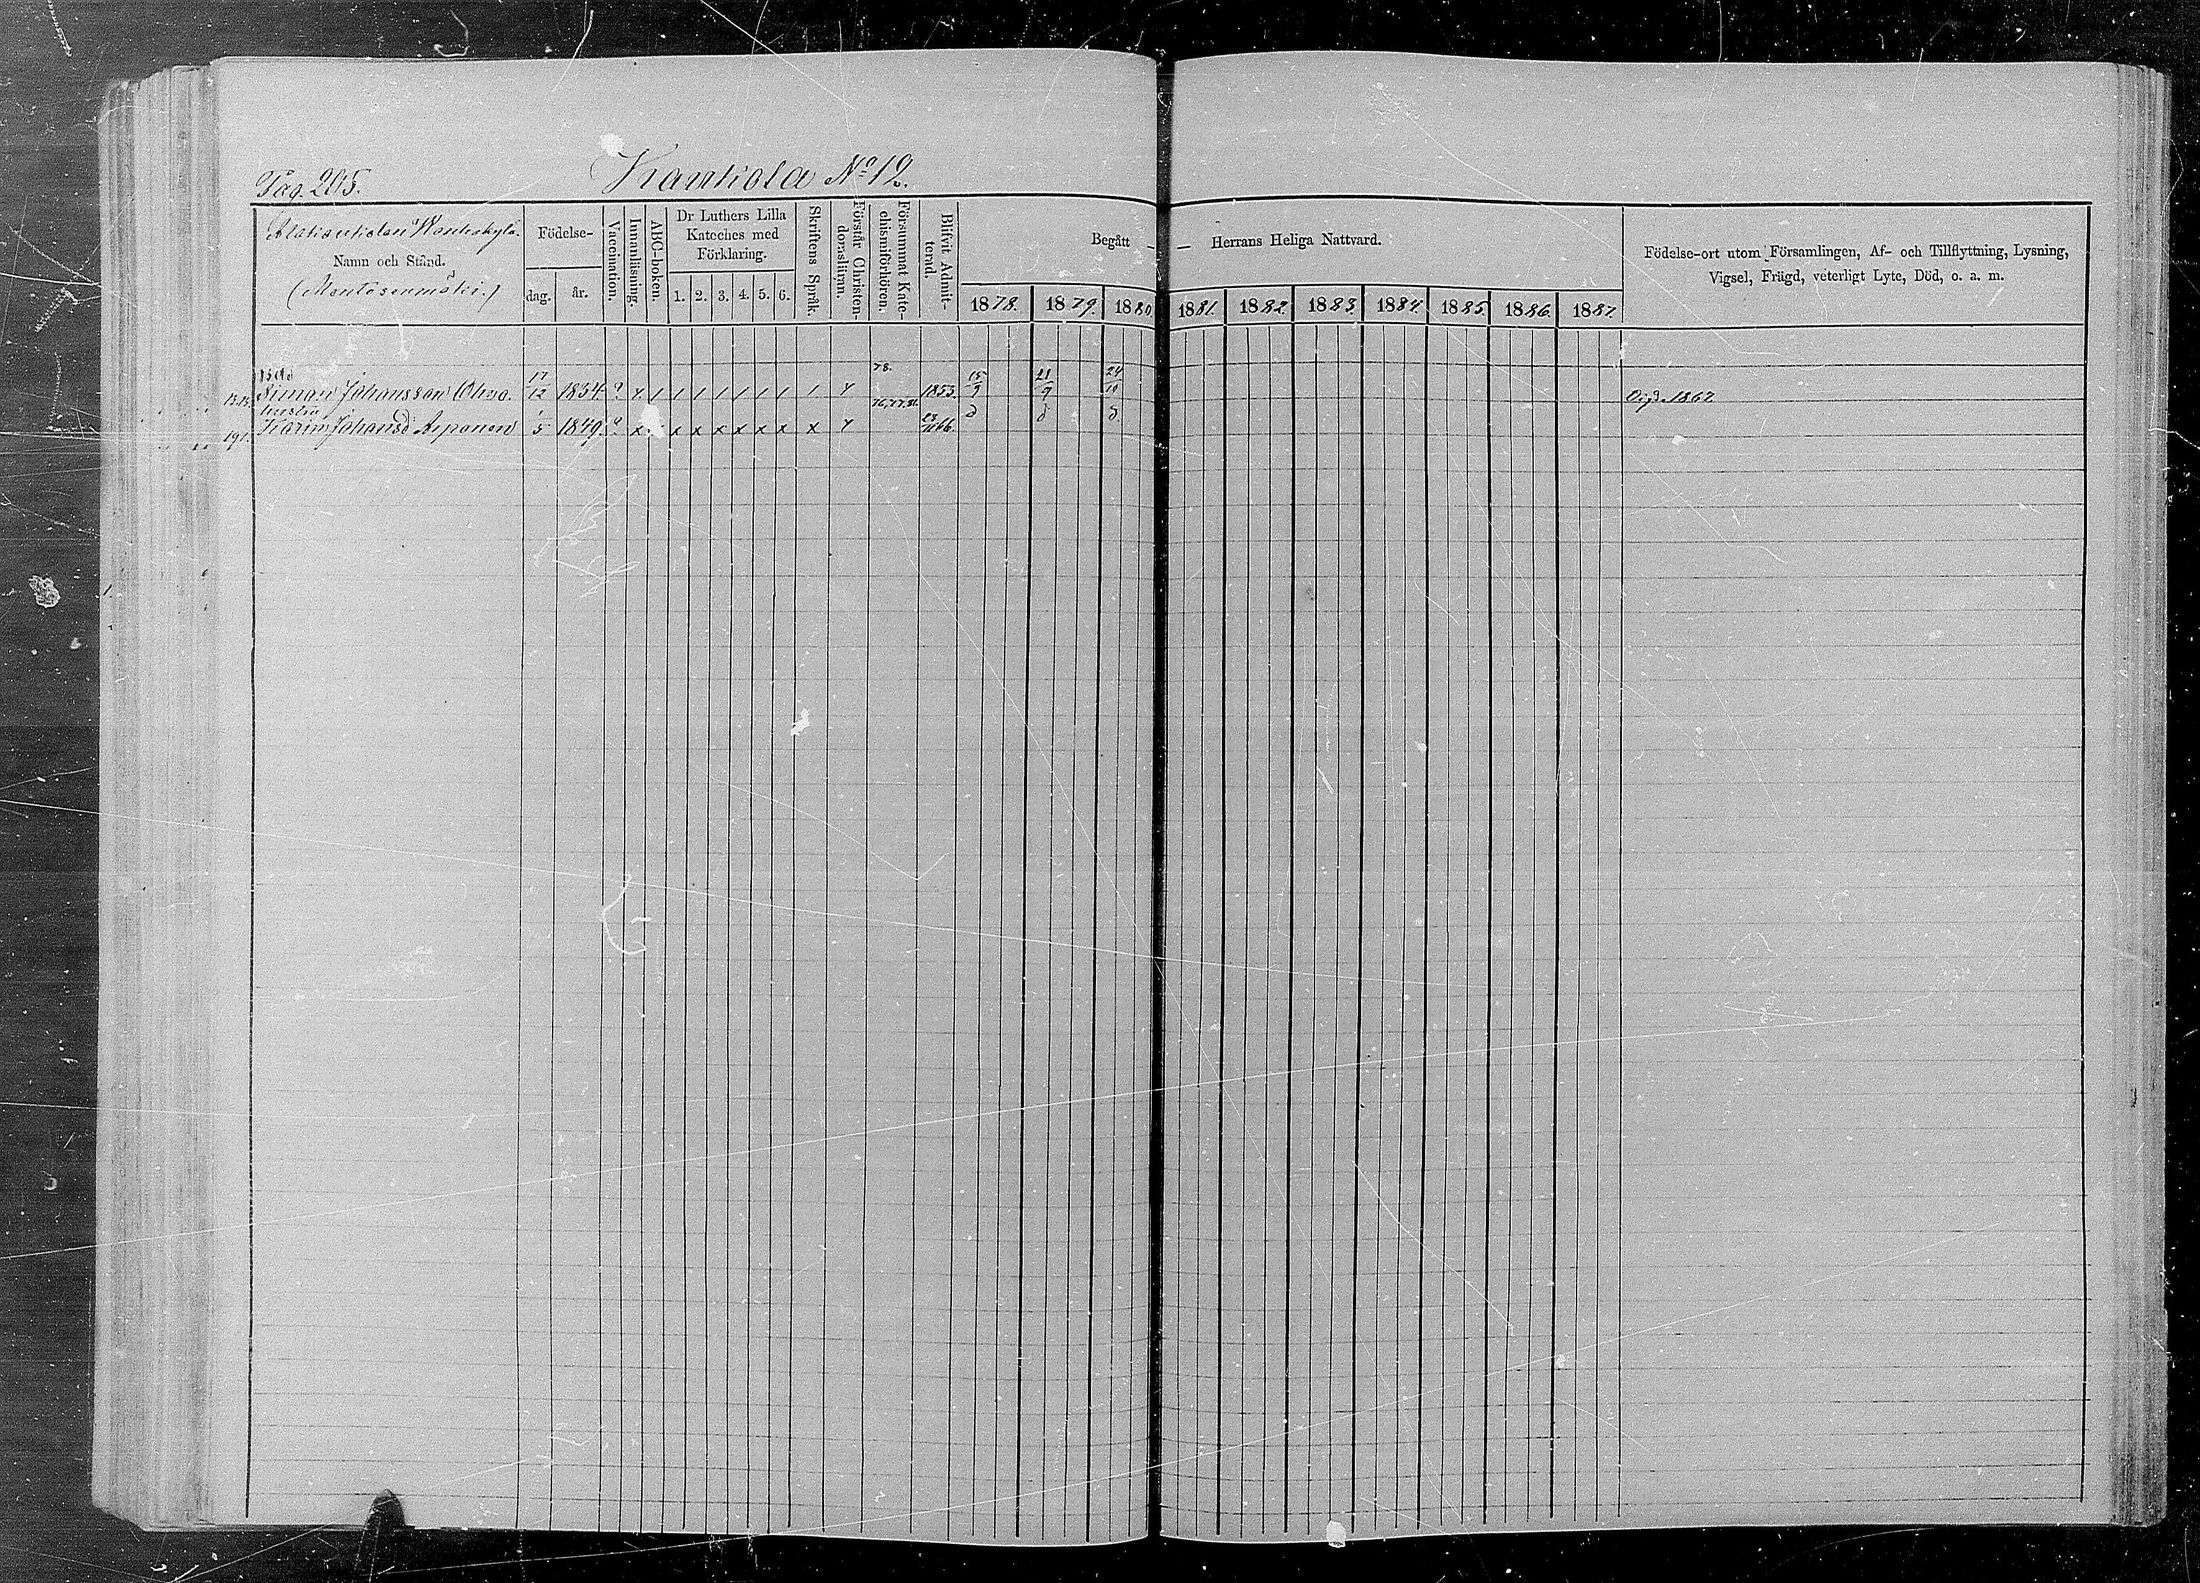 Pag. 205. Kantiola No 12.
Namn och Stånd.
Födelse-
dag. år.
Vaccination.
Innanläsning.
ABC-boken.
Dr Luthers Lilla
Kateches med
Förklaring.
1. 2. 3. 4. 5. 6.
Skriftens Språk.
Förstår Christen-
domsläran.
Försummat Kate-
chismiförhören.
Blifvit Admit-
terad.
Begått — — Herrans Heliga Nattvard.
1878. 1879. 1880 1881. 1882. 1883. 1884. 1885. 1886. 1887.
Födelse-ort utom Församlingen, Af- och Tillflyttning, Lysning,
Vigsel, Frägd, veterligt Lyte, Död, o. a. m.
78.
Simon Johansson 17/12 1834. ? 1853. 15/9 21/9 24/10 1867.
hustru 76,77,81.
191. Karin Johansd Asponen 5 1849. ? x x x x x x x x x 23/11 66. d d d.